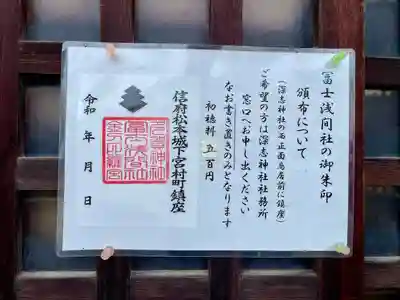 冨士浅間社の御朱印
頒布について
(深志神社の西 正面鳥居前に鎮座)
ご希望の方は深志神社社務所
窓口へお申し出ください
なお書き置きのみとなります
初穂料 五百円
信府松本城下宮村町鎮座
令和 年 月 日